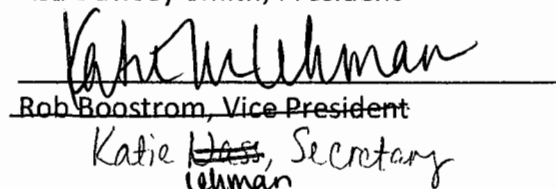 Katie M Lehman
Rob Boostrom, Vice President
Katie Hass, Secretary
lehman